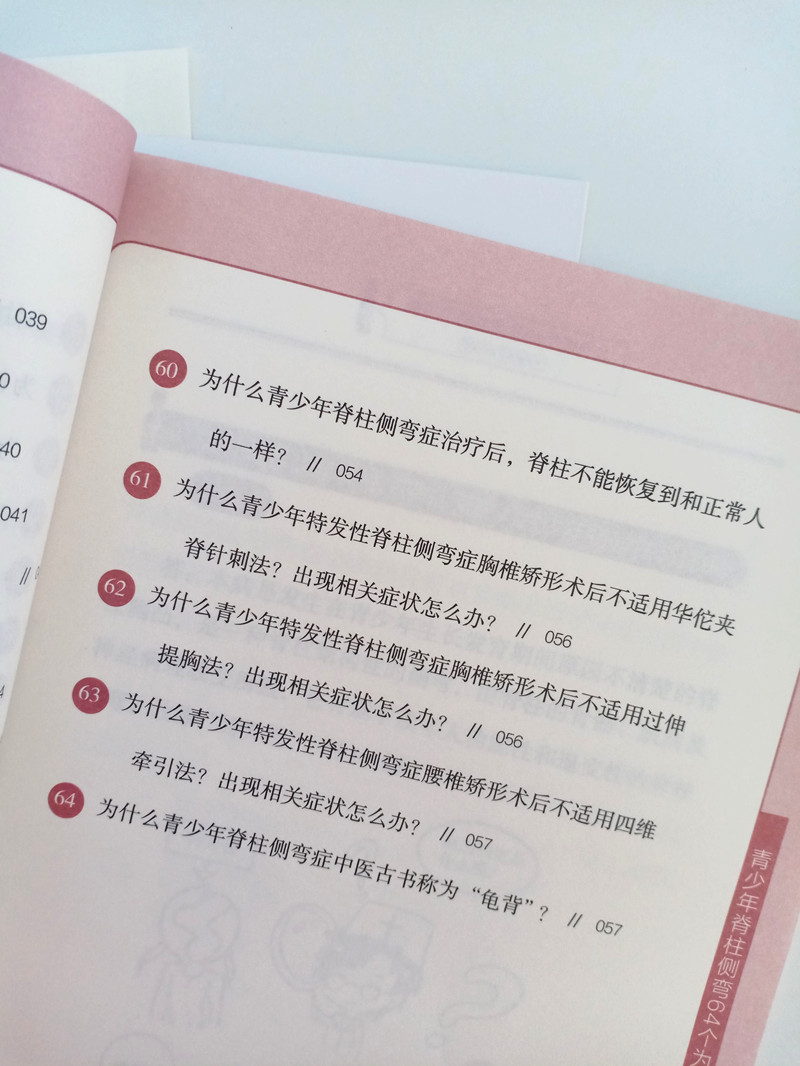 039
0
40
041
//
4
60 为什么青少年脊柱侧弯症治疗后，脊柱不能恢复到和正常人
的一样？ // 054
61 为什么青少年特发性脊柱侧弯症胸椎矫形术后不适用华佗夹
脊针刺法？出现相关症状怎么办？ // 056
62 为什么青少年特发性脊柱侧弯症胸椎矫形术后不适用过伸
提胸法？出现相关症状怎么办？ // 056
63 为什么青少年特发性脊柱侧弯症腰椎矫形术后不适用四维
牵引法？出现相关症状怎么办？ // 057
64 为什么青少年脊柱侧弯症中医古书称为“龟背”？ // 057
青少年脊柱侧弯64个为